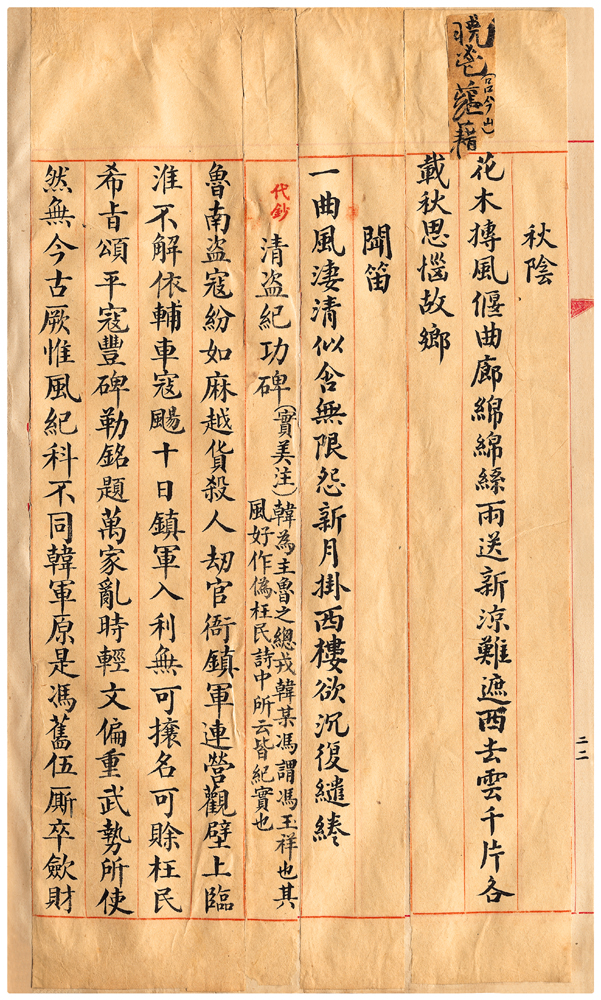 秋陰
花木摶風偃曲廊綿綿絲雨送新涼難遮西去雲千片各
載秋思惱故鄉
聞笛
一曲風淒清似含無限怨新月掛西樓欲沉復繾綣
代鈔
清盜紀功碑(實美注)韓為主魯之總戎韓某馮謂馮玉祥也其
風好作偽枉民詩中所云皆紀實也
魯南盜寇紛如麻越貨殺人劫官衙鎮軍連營觀壁上臨
淮不解依輔車寇颺十日鎮軍入利無可攘名可賒枉民
希旨頌平寇豐碑勒銘題萬家亂時輕文偏重武勢所使
然無今古厥惟風紀科不同韓軍原是馮舊伍厮卒歛財
二二